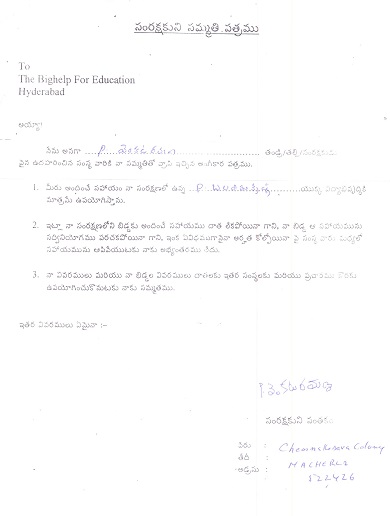 సంరక్షకుని సమ్మతి పత్రము
To
The Bighelp For Education
Hyderabad
అయ్యా!
నేను అనగా ............ తండ్రి/తల్లి/సంరక్షకుడు
పైన ఉదహరించిన సంస్థ వారికి నా సమ్మతితో వ్రాసి ఇచ్చిన అంగీకార పత్రము.
1. మీరు అందించే సహాయం నా సంరక్షణలో ఉన్న ............ యొక్క విద్యాభివృద్ధికి
మాత్రమే ఉపయోగిస్తాము.
2. ఇట్లా నా సంరక్షణలోని బిడ్డకు అందించే సహాయము దాత లేకపోయినా గాని, నా బిడ్డ ఆ సహాయమును
సద్వినియోగము పరచకపోయినా గాని, ఇంక ఏవిధముగానైనా అర్హత కోల్పోయినా పై సంస్థ వారు మధ్యలో
సహాయమును ఆపివేయుటకు నాకు అభ్యంతరము లేదు.
3. నా వివరములు మరియు నా బిడ్డల వివరములు దాతలకు ఇతర సంస్థలకు మరియు ప్రచారము కొరకు
ఉపయోగించుకొనుటకు నాకు సమ్మతము.
ఇతర వివరములు ఏమైనా :-
సంరక్షకుని సంతకం
పేరు : Chennakesava Colony
తేదీ : MACHERLA
అడ్రసు : 522426